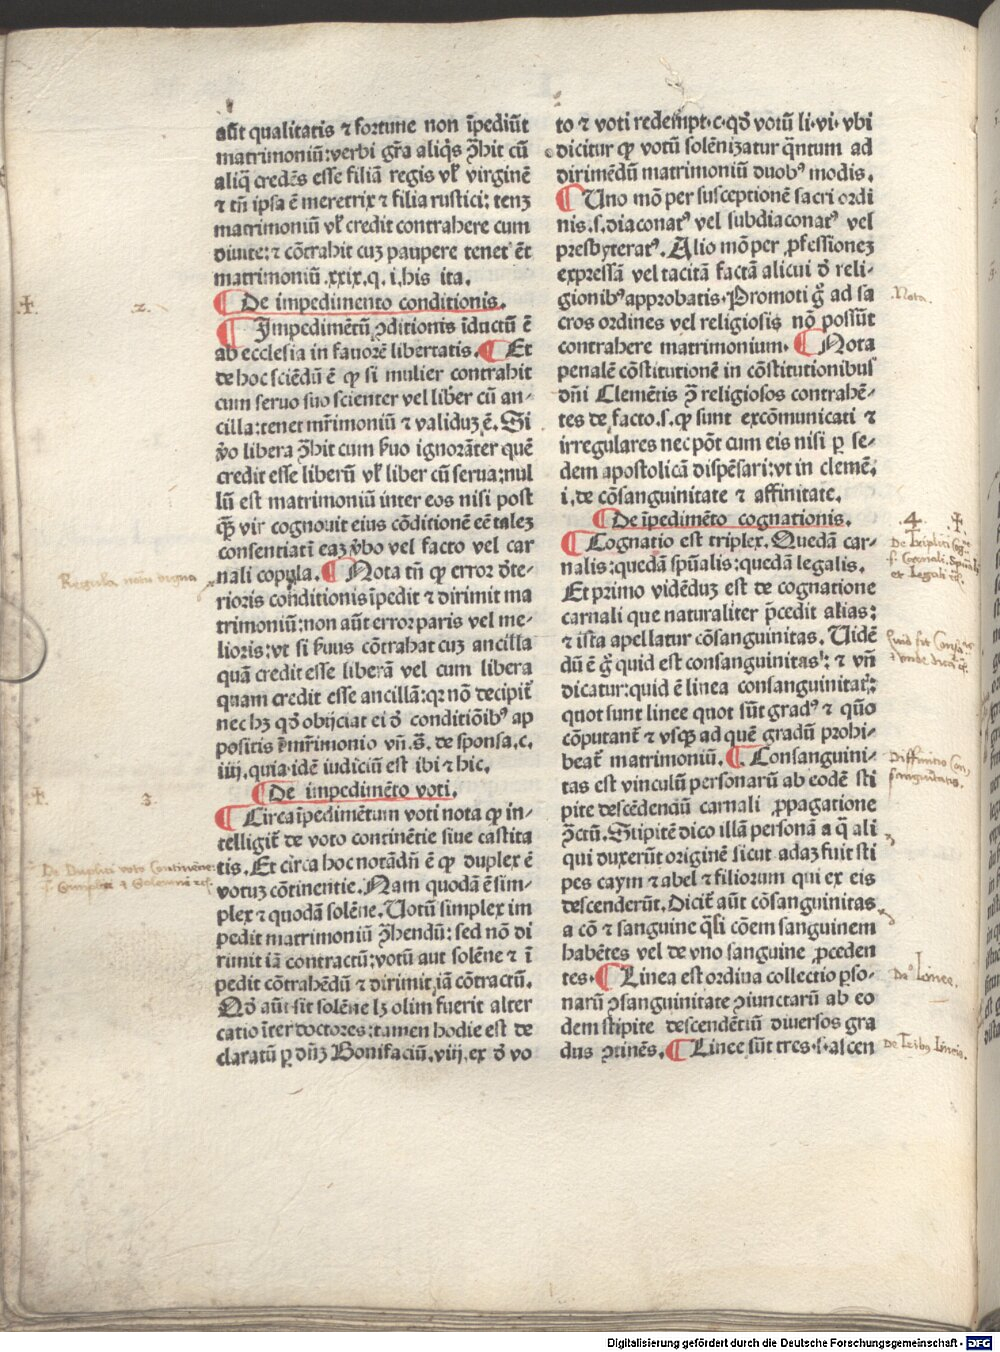 aūt qualitatis ⁊ fortune non īpediūt
matrimoniū: verbi gr̄a aliq̇s ꝯ̄hit cū
aliq̄ credēs esse filiā regis vl̓ virginē
⁊ tn̄ ipsa ē meretrix ⁊ filia rustici: tenꝫ
matrimoniū vl̓ credit contrahere cum
diuite: ⁊ cōtrahit cuꝫ paupere tenet̉ ēt
matrimoniū .xxix.q.i.his ita.
¶ De impedimento conditionis.
¶ Impedimētū ꝯditionis īductū ē
ab ecclesia in fauorē libertatis. ¶ Et
de hoc sciēdū ē ꝙ si mulier contrahit
cum seruo suo scienter vel liber cū an-
cilla: tenet mr̄imoniū ⁊ validuꝫ ē. Si
v̊o libera ꝯ̄hit cum s̓uo ignorāter quē
credit esse liberū vl̓ liber cū serua: nul
lū est matrimoniū inter eos nisi post
qꝫ̄ vir cognouit eius cōditionē eē talez
consentiat̄ī eaꝫ v̓bo vel facto vel car
nali copula. ¶ Nota tn̄ ꝙ error dete-
rioris conditionis īpedit ⁊ dirimit ma
trimoniū: non aūt error paris vel me-
lioris: vt si s̓uus cōtrahat cuꝫ ancilla
quā credit esse liberā vel cum libera
quam credit esse ancillā: qꝛ nō decipit̉
nec hꝫ qd̓ obijciat ei d̓ conditiōibꝰ ap
positis ī mr̄imonio vn̄.ff. de sponsa. c.
iiij. quia idē iudiciū est ibi ⁊ hic.
¶ De impedimēto voti.
¶ Circa īpedimētum voti nota ꝙ in-
telligit̉ de voto continētie siue castita
tis. Et circa hoc notādū ē ꝙ duplex ē
votuꝫ cōtinentie. Nam quodā ē sim-
plex ⁊ quodā solēne. Uotū simplex im
pedit matrimoniū ꝯ̄hendū: sed nō di
rimit iā contractū: votū aut solēne ⁊ ī
pedit cōtrahēdū ⁊ dirimit iā cōtractū.
Qd̓ aūt sit solēne lꝫ olim fuerit alter
catio īter doctores: tamen hodie est de
claratū ꝑ dn̄ꝫ Bonifaciū.viij. ex d̓ vo
to ⁊ voti redempt. c. qd̓ votū li. vi. vbi
dicitur ꝙ votū solēnizatur q̄ntum ad
dirimēdū matrimoniū duobꝰ modis.
¶ Uno mō per susceptionē sacri ordi
nis.s. diaconatꝰ vel subdiaconatꝰ vel
presbyteratꝰ. Alio mō per ꝓfessionez
expressā vel tacitā factā alicui d̓ reli-
gionibꝰ approbatis. Promoti g̓ ad sa
cros ordines vel religiosis nō possūt
contrahere matrimonium. ¶ Nota
penalē cōstitutionē in cōstitutionibus
dn̄i Clemētis ꝯ̄ religiosos contrahē-
tes de facto.s. ꝙ sunt excōmunicati ⁊
irregulares nec pn̄t cum eis nisi ꝑ se-
dem apostolicā dispēsari: vt in clemē.
i. de cōsanguinitate ⁊ affinitate.
¶ De īpedimēto cognationis.
¶ Cognatio est triplex. Quedā car-
nalis: quedā spūalis: quedā legalis.
Et primo vidēduꝫ est de cognatione
carnali que naturaliter p̄cedit alias:
⁊ ista apellatur cōsanguinitas. Uidē
dū ē g̓ quid est consanguinitas: ⁊ vn̄
dicatur: quid ē linea consanguinitat̉:
quot sunt linee quot sūt gradꝰ ⁊ quō
cōputant̉ ⁊ vsqꝫ ad quē gradū prohi-
beat̉ matrimoniū. ¶ Consanguini-
tas est vinculū personarū ab eodē sti
pite descēdenciū carnali ꝓpagatione
ꝯ̄ctū. Stipitē dico illā personā a q̄ ali
qui duxerūt originē sicut adaꝫ fuit sti
pes caym ⁊ abel ⁊ filiorum qui ex eis
descenderūt. Dicit̉ aūt cōsanguinitas
a cō ⁊ sanguine q̄si cōem sanguinem
habētes vel de vno sanguine ꝓceden
tes. ¶ Linea est ordina collectio ꝑso-
narū ꝯsanguinitate ꝯiunctarū ab eo
dem stipite descendētiū diuersos gra
dus ꝯtinēs. ¶ Linee sūt tres.s. ascen
2.
Regula
3.
De Duplici voto Continēne:
.Nota.
.4.
De Triplici
et Legali
Quid sit
Diffinitio Con
sanguitatis.
Linee.
De Tribꝰ Lineis.
Digitalisierung gefördert durch die Deutsche Forschungsgemeinschaft - DFG